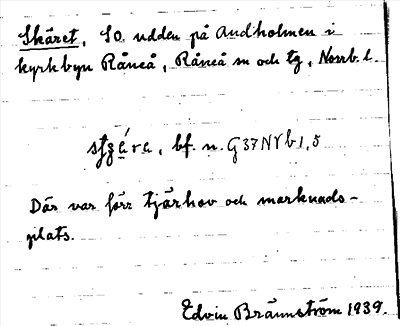 Skäret, SO. udden på Andholmen i
kyrkbyn Råneå, Råneå sn och tg, Norrb. l.
bf. n. G37NVb1,5
Där var förr tjärhov och marknads-
plats.
Edvin Brännström 1939.